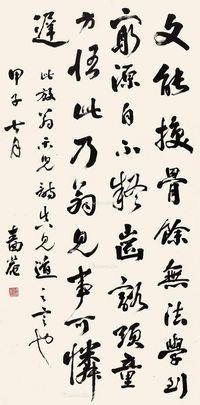 文能換骨餘無法學到
窮源自不疑齒豁頭童
方悟此乃翁見事可憐
遲
此放翁示兒詩真見道之言也
甲子七月